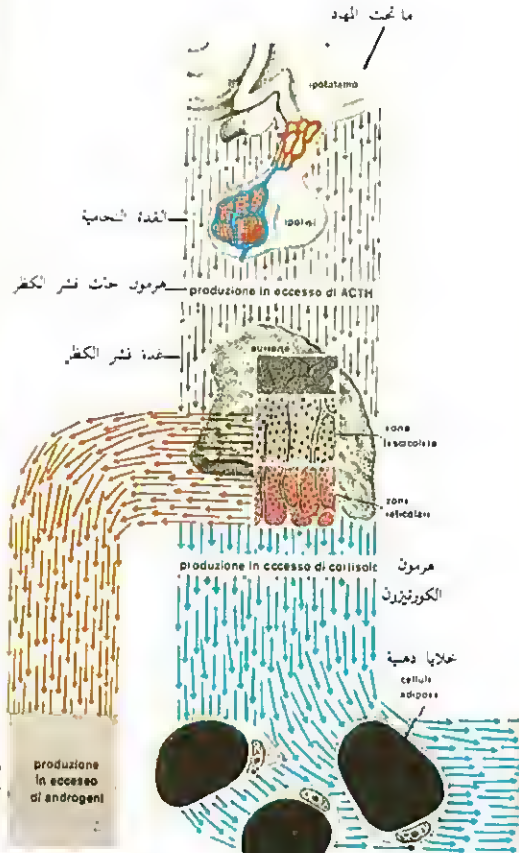 ما تحت المهد
ipotalamo
الغدة النخامية
ipofisi
هرمون حاث قشر الكظر
produzione in eccesso di ACTH
غدة قشر الكظر
surrene
zona
fascicolata
zona
reticolare
produzione in eccesso di cortisolo
هرمون
الكورتيزون
خلايا دهنية
cellule
adipose
produzione
in eccesso
di androgeni